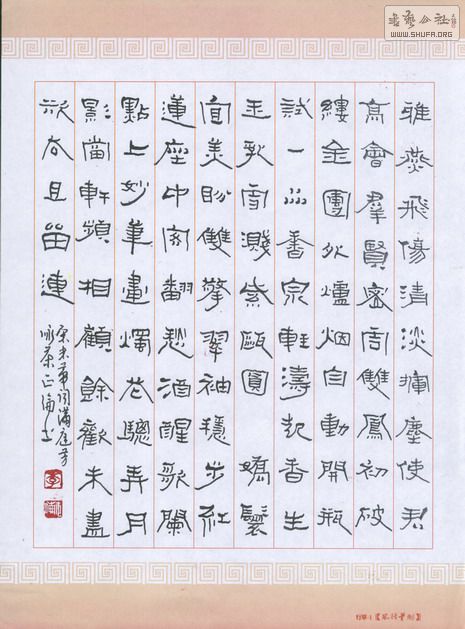 書藝公社
WWW.SHUFA.ORG
雅燕飛傷清淡揮塵使君
高會羣賢密周雙鳳初破
縷金團外爐烟自動開瓶
試一品香泉輕濤起香生
玉乳雪濺紫甌圓 嬌鬟
宜美盼雙擎翠袖穩步紅
蓮座中客翻愁酒醒歌闌
點上妙筆畫燭花驄弄月
影當軒頻相顧餘歡未盡
欲去且留連
宋米芾詞滿庭芳
詠茶 正倫書